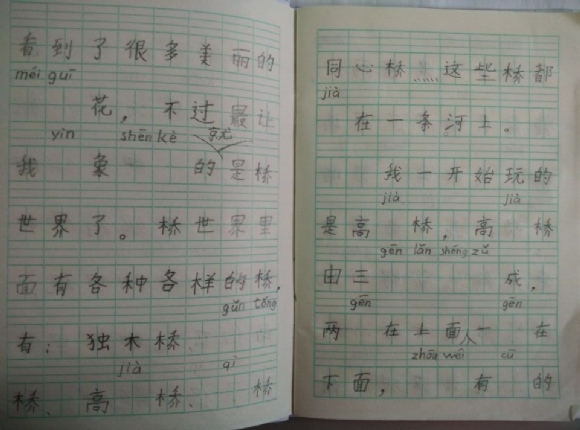 看到了很多美丽的
méi guī
花，不过最让
yìn shēn kè 就
我 象 的是桥
世界了。桥世界里
面有各种各样的桥，
gǔn tǒng
有：独木桥
jià qì
桥、高 桥、 桥
同心桥……这些桥都
jià
在一条河上。
我一开始玩的
jià jià
是高 桥，高 桥
gēn lǎn shéng zǔ
由三 成，
gēn gēn
两 在上面人一 在
zhōu wéi cū
下面， 有 的